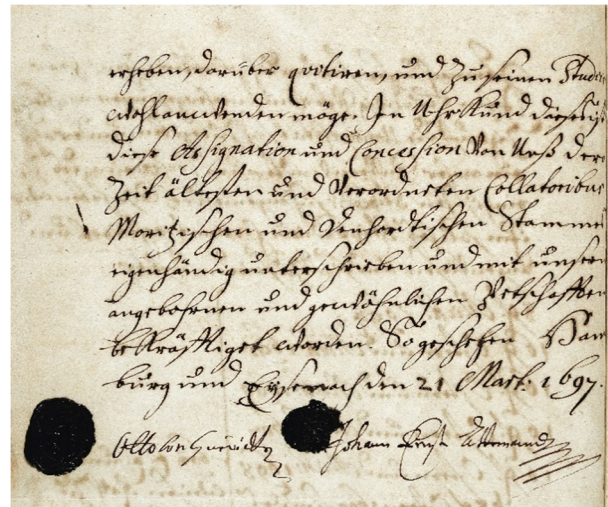 erheben, darüber qvitiren, und zu seinen Studiis
wohl anwenden möge. In Uhrkund dessen ist
diese Assignation und Concession Von Unß der
Zeit ältesten und Verordneten Collatoribus
Moritzischen und Denhardtischen Stammes
eigenhändig unterschrieben und mit unsern
angebohrnen und gewöhnlichen Petschafften
bekräfftiget worden. So geschehen Ham
burg und Eysenach den 21 Mart: 1697.
Otto von Johann Ernst